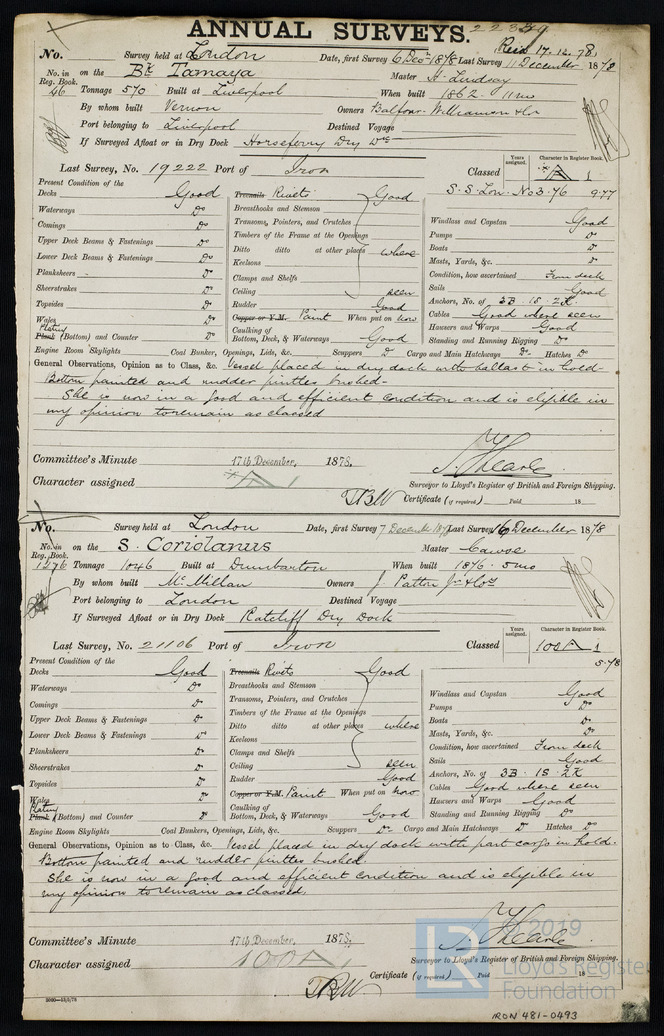 ANNUAL SURVEYS. 22339
Recd 17.12.78
No. Survey held at London Date, first Survey 6 Decr 1878 Last Survey 11 December 1878
No. in Reg. Book. on the Bk Tamaya Master H. Lindsay
46 Tonnage 570 Built at Liverpool When built 1862 - 11mo
By whom built Vernon Owners Balfour Williamson & Co
Port belonging to Liverpool Destined Voyage
If Surveyed Afloat or in Dry Dock Horseferry Dry Dk
Last Survey, No. 19222 Port of Iron Classed Years assigned. Character in Register Book. A 1
S.S. Lon. No 3-76 9-77
Present Condition of the
Decks Good Treenails Rivets Good
Waterways Do Breasthooks and Stemson Windlass and Capstan Good
Comings Do Transoms, Pointers, and Crutches Pumps Do
Upper Deck Beams & Fastenings Do Timbers of the Frame at the Openings Boats Do
Lower Deck Beams & Fastenings Do Ditto ditto at other places where Masts, Yards, &c. Do
Planksheers Do Keelsons Condition, how ascertained From deck
Sheerstrakes Do Clamps and Shelfs Sails Good
Topsides Do Ceiling seen Anchors, No. of 3B. 1S. 2K.
Wales Do Rudder Good Cables Good where seen
Plating Plank (Bottom) and Counter Do Copper or Y.M. Paint When put on now Hawsers and Warps Good
Caulking of Bottom, Deck, & Waterways Good Standing and Running Rigging Do
Engine Room Skylights Coal Bunker, Openings, Lids, &c. Scuppers Do Cargo and Main Hatchways Do Hatches Do
General Observations, Opinion as to Class, &c. Vessel placed in dry dock with ballast in hold-
Bottom painted and rudder pintles bushed-
She is now in a good and efficient condition and is eligible in
my opinion to remain as classed
Committee's Minute 17th December, 1878.
Character assigned A 1
Surveyor to Lloyd's Register of British and Foreign Shipping.
Certificate (if required) Paid 18
No. Survey held at London Date, first Survey 7 December 1878 Last Survey 16 December 1878
No. in Reg. Book. on the S. Coriolanus Master Cawse
1276 Tonnage 1046 Built at Dumbarton When built 1876 - 5mo
By whom built McMillan Owners J. Patton Jr & Co
Port belonging to London Destined Voyage
If Surveyed Afloat or in Dry Dock Ratcliff Dry Dock
Last Survey, No. 21106 Port of Iron Classed Years assigned. Character in Register Book. 100A 1
5-78
Present Condition of the
Decks Good Treenails Rivets Good
Waterways Do Breasthooks and Stemson Windlass and Capstan Good
Comings Do Transoms, Pointers, and Crutches Pumps Do
Upper Deck Beams & Fastenings Do Timbers of the Frame at the Openings Boats Do
Lower Deck Beams & Fastenings Do Ditto ditto at other places where Masts, Yards, &c. Do
Planksheers Do Keelsons Condition, how ascertained From deck
Sheerstrakes Do Clamps and Shelfs Sails Good
Topsides Do Ceiling seen Anchors, No. of 3B. 1S. 2K
Wales Do Rudder Good Cables Good where seen
Plating Plank (Bottom) and Counter Do Copper or Y.M. Paint When put on now Hawsers and Warps Good
Caulking of Bottom, Deck, & Waterways Good Standing and Running Rigging Do
Engine Room Skylights Coal Bunkers, Openings, Lids, &c. Scuppers Do Cargo and Main Hatchways Do Hatches Do
General Observations, Opinion as to Class, &c. Vessel placed in dry dock with part cargo in hold.
Bottom painted and rudder pintles bushed.
She is now in a good and efficient condition and is eligible in
my opinion to remain as classed.
Committee's Minute 17th December, 1878.
Character assigned 100A 1
Surveyor to Lloyd's Register of British and Foreign Shipping.
Certificate (if required) Paid 18
LR © 2019
Lloyd's Register
Foundation
IRON 481-0493